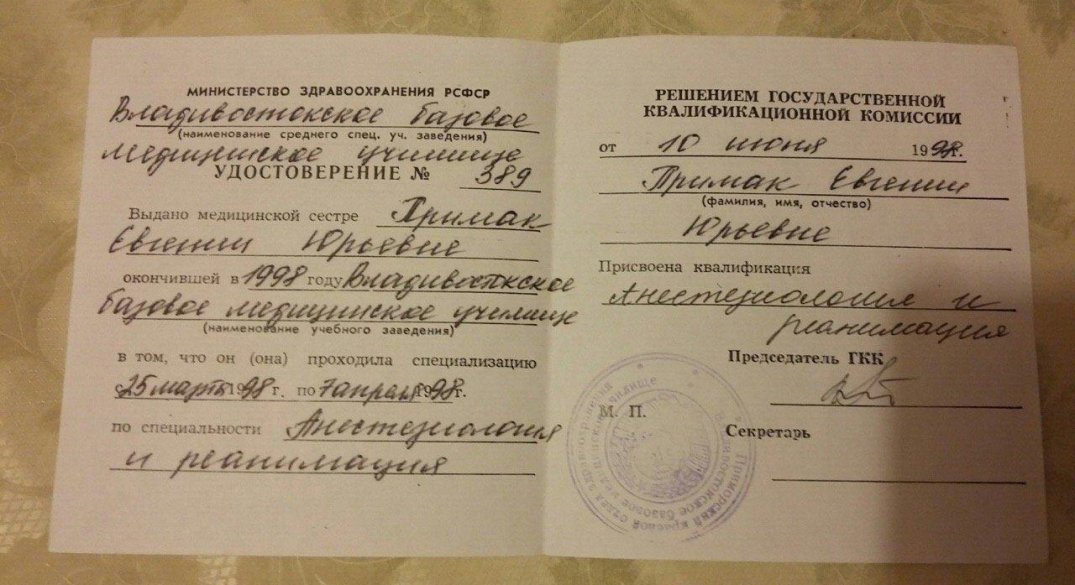 МИНИСТЕРСТВО ЗДРАВООХРАНЕНИЯ РСФСР
Владивостокское базовое
(наименование среднего спец. уч. заведения)
медицинское училище
УДОСТОВЕРЕНИЕ № 389
Выдано медицинской сестре Примак
Евгении Юрьевне
окончившей в 1998 году Владивостокское
базовое медицинское училище
(наименование учебного заведения)
в том, что он (она) проходила специализацию
с 25 марта 1998 г. по 7 апреля 1998 г.
по специальности Анестезиология
и реанимация
РЕШЕНИЕМ ГОСУДАРСТВЕННОЙ
КВАЛИФИКАЦИОННОЙ КОМИССИИ
от 10 июня 1998 г.
Примак Евгении
(фамилия, имя, отчество)
Юрьевне
Присвоена квалификация
Анестезиология и
реанимация
Председатель ГКК
М. П.
Секретарь